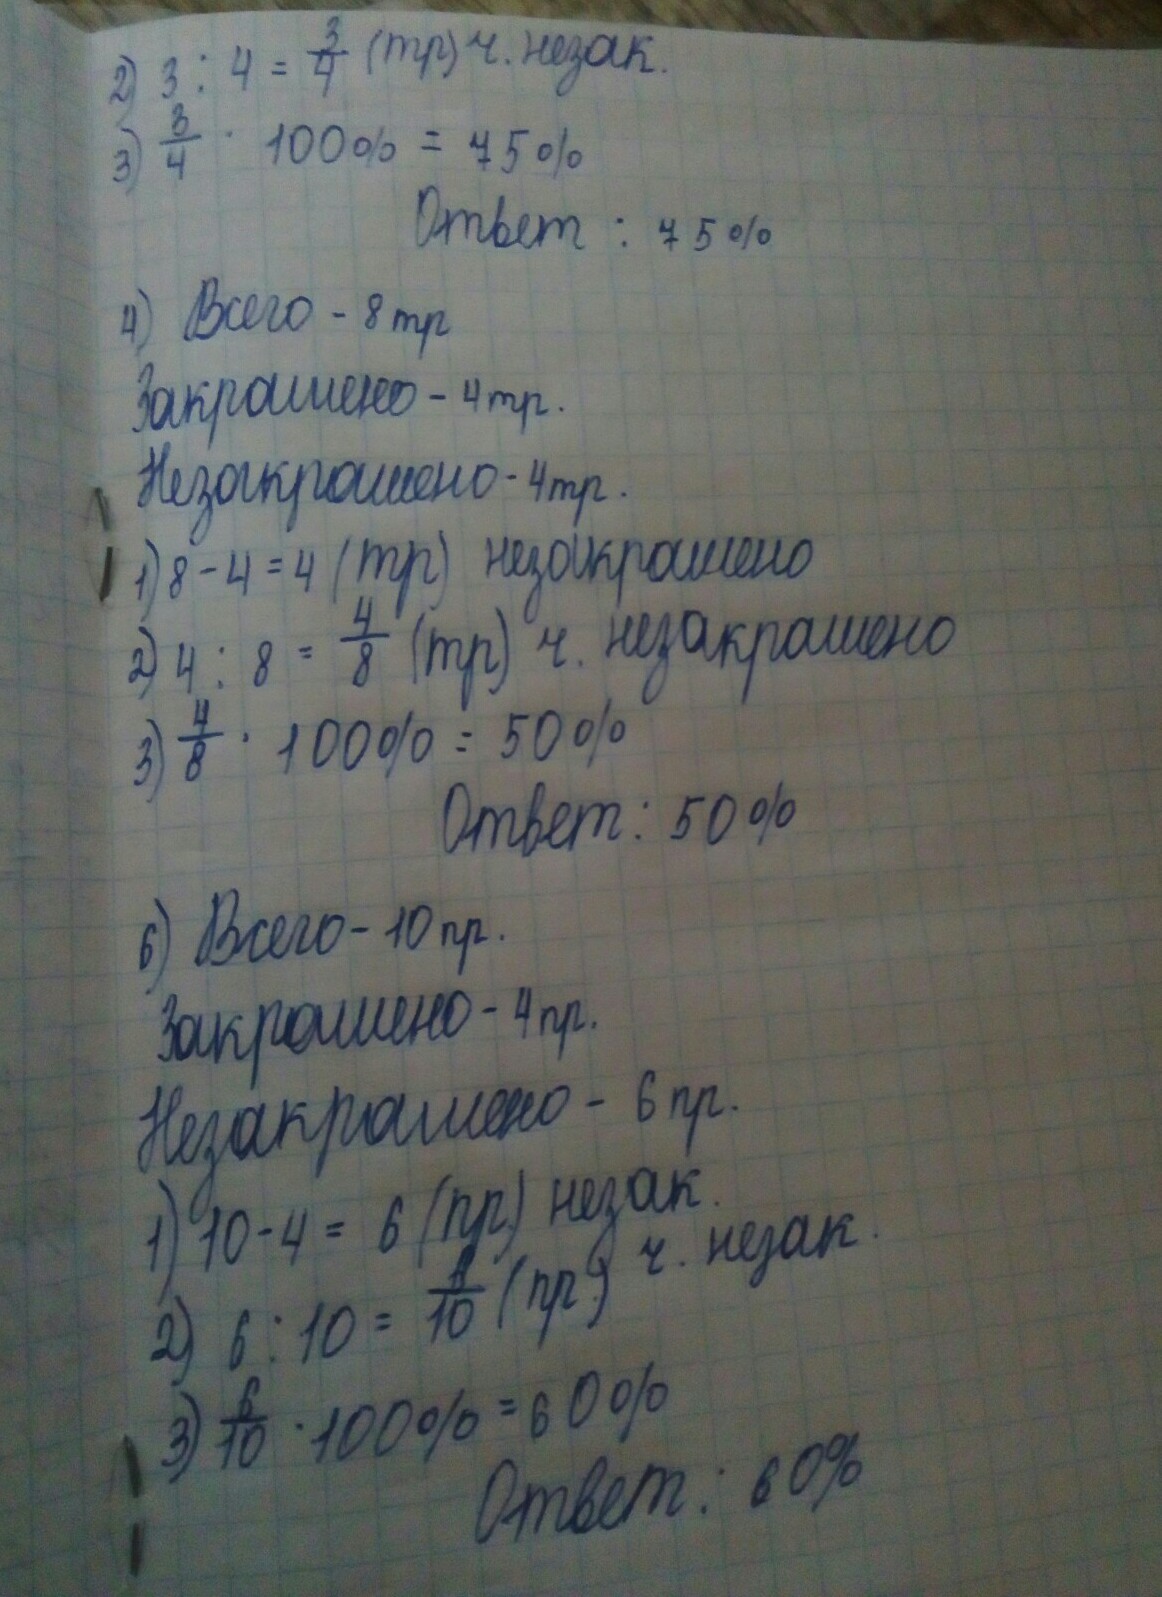 2) 3 : 4 = 3/4 (тр) ч. незак.
3) 3/4 · 100% = 75%
Ответ : 75%
4) Всего - 8 тр
Закрашено - 4 тр.
Незакрашено - 4 тр.
1) 8 - 4 = 4 (тр) незакрашено
2) 4 : 8 = 4/8 (тр) ч. незакрашено
3) 4/8 · 100% = 50%
Ответ : 50%
6) Всего - 10 пр.
Закрашено - 4 пр.
Незакрашено - 6 пр.
1) 10 - 4 = 6 (пр) незак.
2) 6 : 10 = /10 (пр.) ч. незак.
3) 6/10 · 100% = 60%
Ответ : 60%